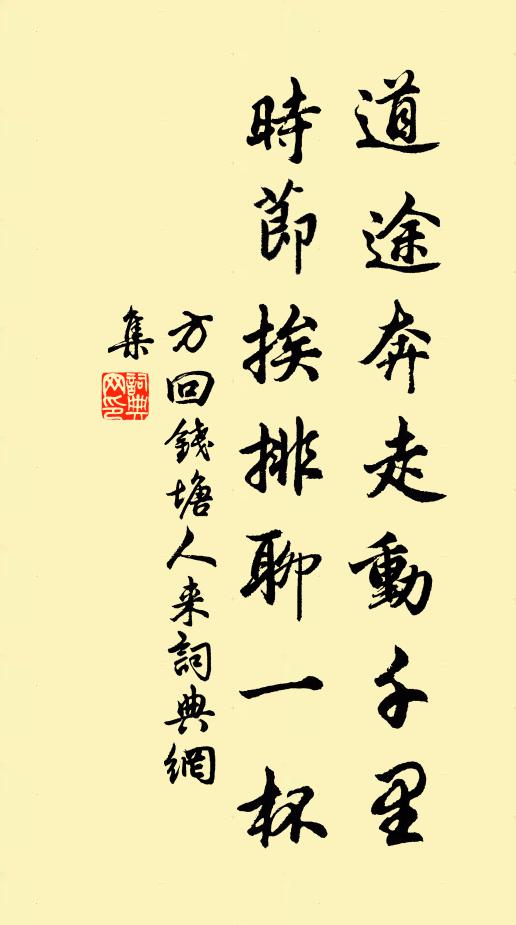 道途奔走動千里
時節挨排聊一杯
方回錢塘人来詞典網
集
詞典网印